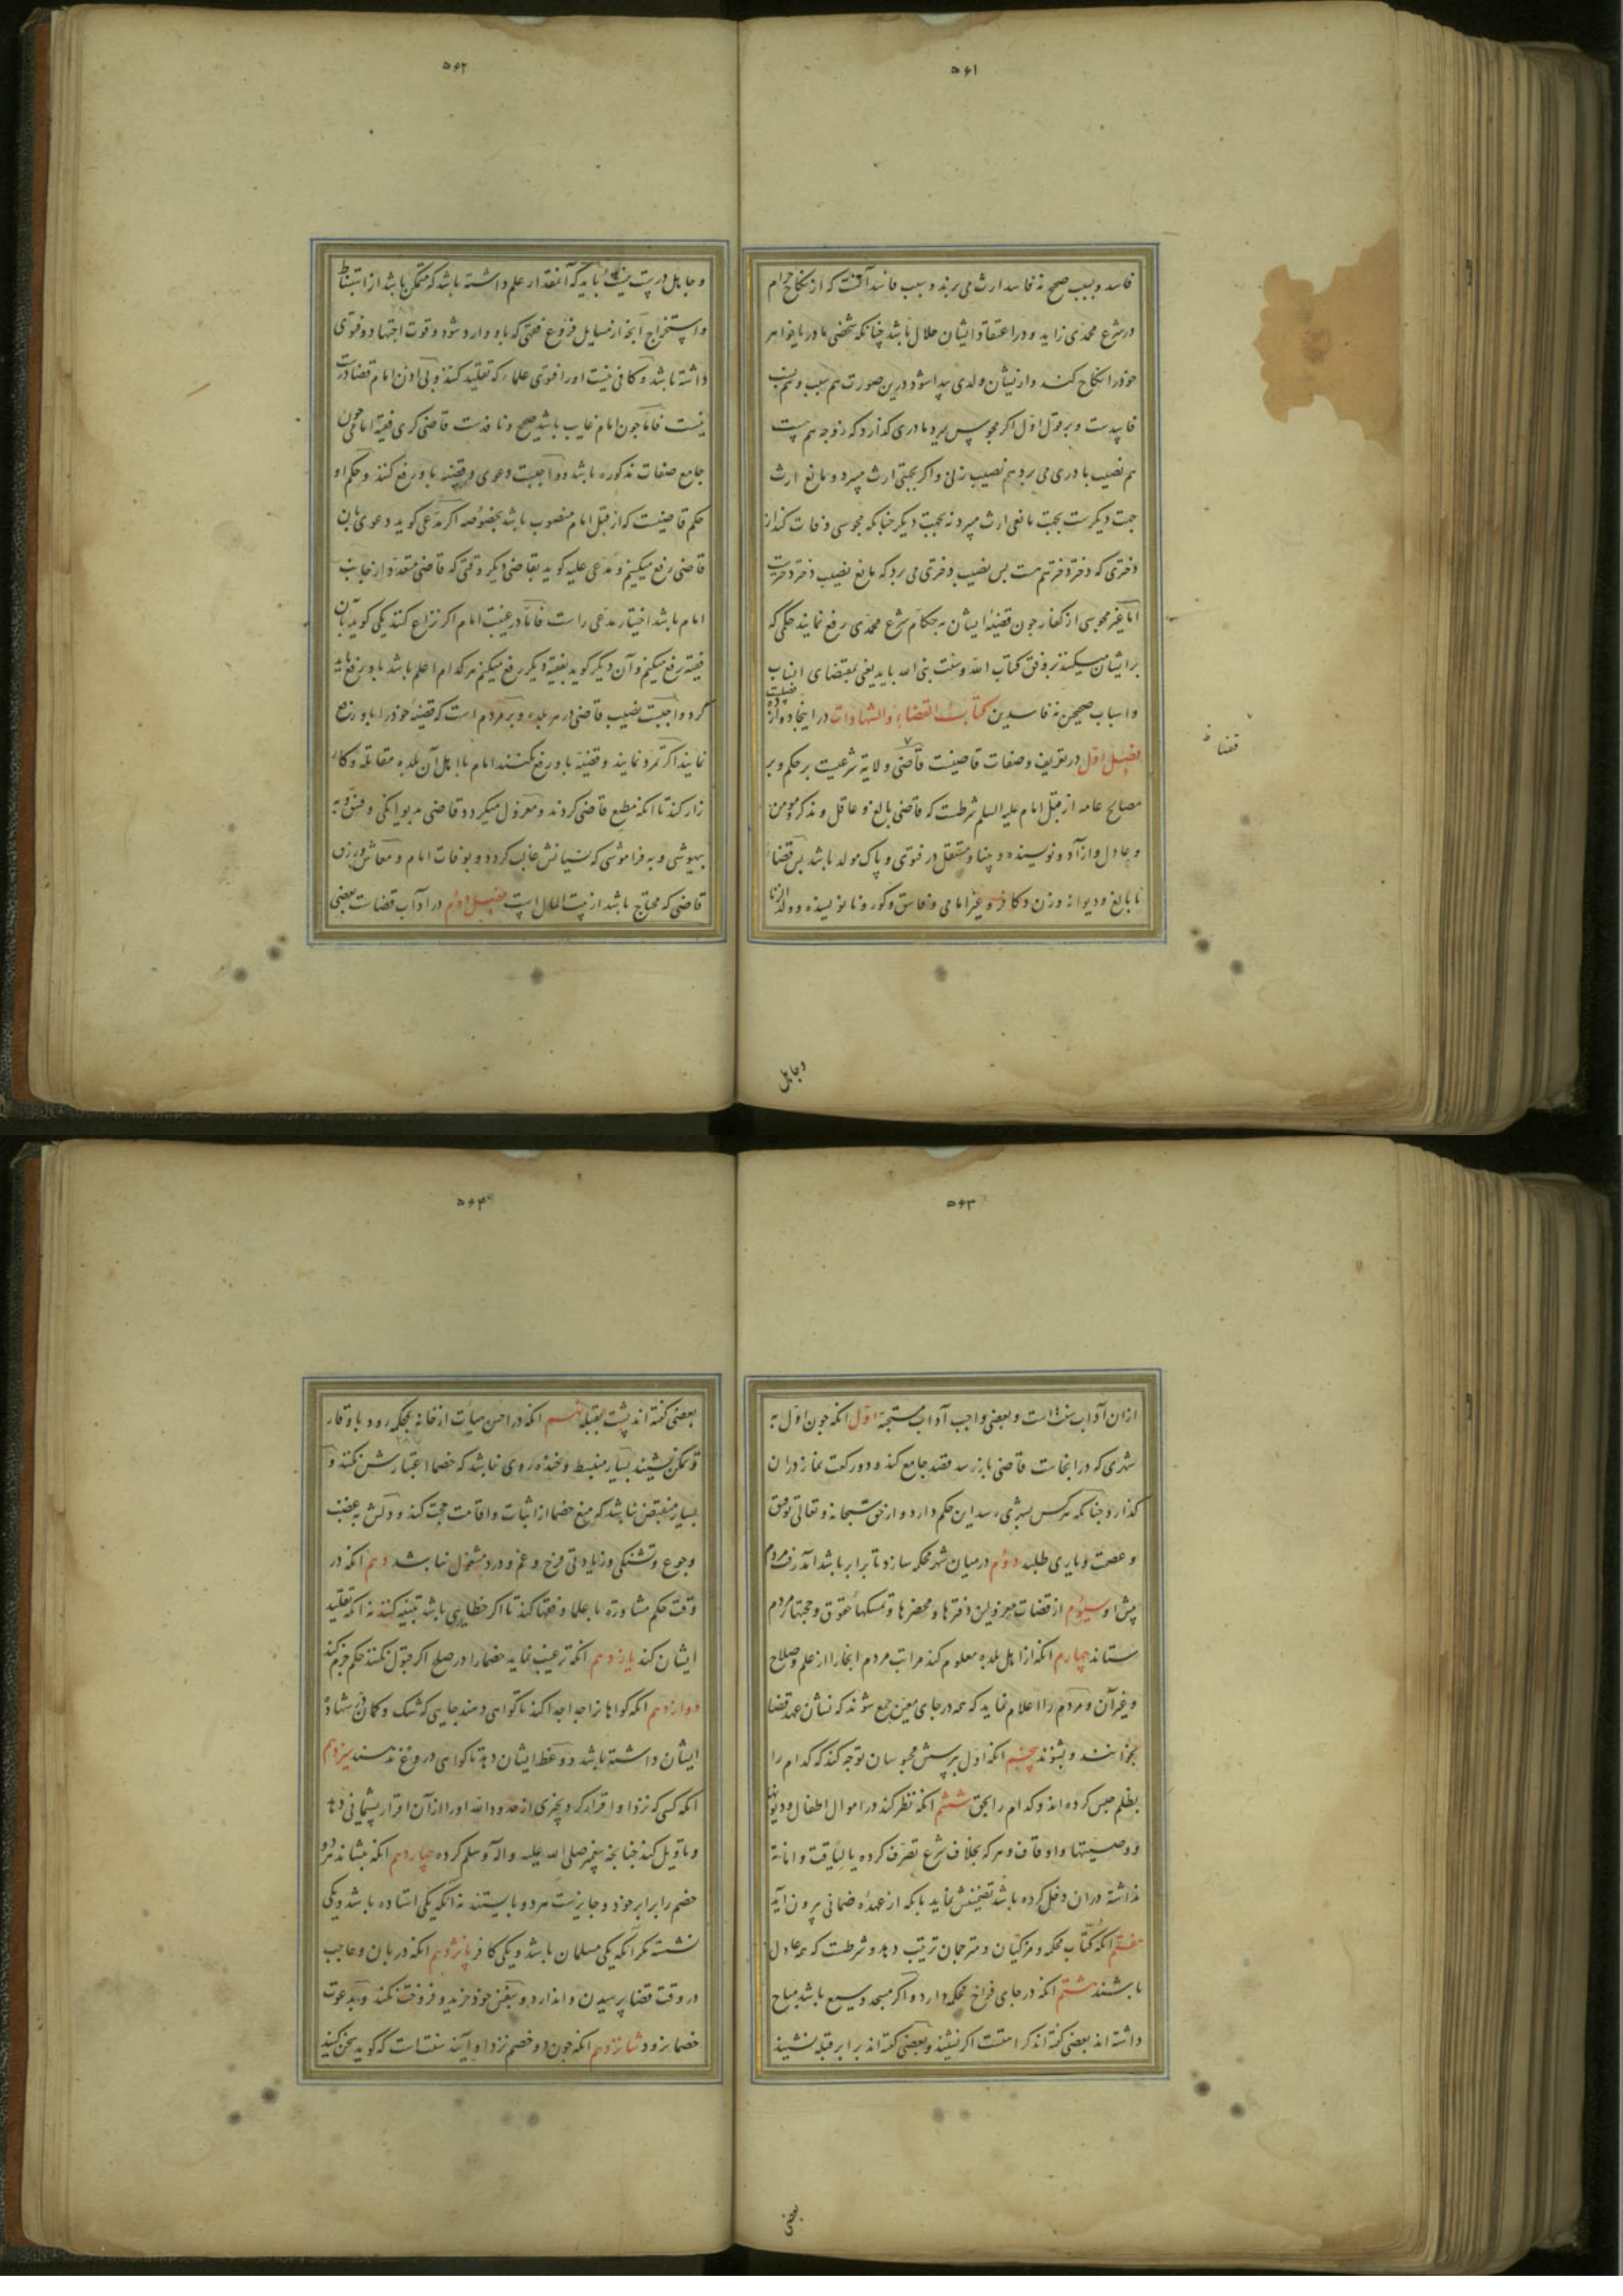 ۵۶۱
فاسد و بسبب صحیح نه فاسد ارث می برند و سبب فاسد آنست که از نکاح حرام
در شرع محمدی زاید و در اعتقاد ایشان حلال باشد چنانکه شخصی مادر یا خواهر
خود را نکاح کند و از ایشان ولدی پیدا شود درین صورت هم سبب و هم نسب
فاسدست و بر قول اول اکر مجوسی بمیرد مادری کذارد که زوجه هم هست
هم نصیب مادری می برد هم نصیب زنی و اکر بجهتی ارث میبرد و مانع ارث
جهت دیکرست بجهت مانعی ارث میبرد نه بجهت دیکر چنانکه مجوسی وفات کند از
دختری که دختر دختر هم هست پس نصیب دختری می برد که مانع نصیب دختر دختریت
اما غیر مجوسی از کفار چون قضیهٔ ایشان به حکام شرع محمدی رفع نمایند حکمی که
برایشان میکنند بر وفق کتاب الله و سنت نبی الله باید یعنی بمقتضای انساب
و اسباب صحیحین نه فاسدین کتاب القضاء والشهادات در اینجا دوازده فصلیت
فصل اول در تعریف و صفات قاضیست قاضی ولایة شرعیت بر حکم و بر
قضا ط
مصالح عامه از قبل امام علیه السلم شرطست که قاضی بالغ و عاقل و مذکر و مومن
و عادل و آزاد و نویسنده و بینا و مستقل در فتوی و پاک مولد باشد پس قضاء
نابالغ و دیوانه و زن و کافر و غیر امامی و فاسق و کور و نانویسنده و ولدالزنا
وجاهل
۵۶۲
و جاهل درست نیست باید که آنمقدار علم داشته باشد که متمکن باشد از استنباط
و استخراج آنچه از مسایل فروع فقهی که باو وارد شود و قوت اجتهاد و فتوی
داشته باشد و کافی نیست اورا فتوی علما که تقلید کند و بی اذن امام قضا درست
نیست فاما چون امام غایب باشد صحیح و نافذست قاضی کری فقیه امامی چون
جامع صفات مذکوره باشد و واجبست دعوی و قضیه باو رفع کنند و حکم او
حکم قاضیست که از قبل امام منصوب باشد بخصوصه اکر مدعی کوید دعوی باین
قاضی رفع میکنیم و مدعی علیه کوید بقاضی دیکر وقتی که قاضی متعدد از جانب
امام باشد اختیار مدعی راست فاما در غیبت امام اکر نزاع کنند یکی کوید بآن
فقیه رفع میکنیم و آن دیکر کوید بفقیه دیکر رفع میکنیم هر کدام اعلم باشد باو رفع باید
کرد و واجبست نصب قاضی در هر بلده و بر مردم است که قضیه خود را باو رفع
نمایند اکر تمرد نمایند و قضیه باو رفع نکنند امام با اهل آن بلده مقاتله و کار
زار کند تا آنکه مطیع قاضی کردند و معزول میکردد قاضی بدیوانکی و فسق و به
بیهوشی و به فراموشی که نسیانش غالب کردد و بوفات امام و معاش و رزق
قاضی که محتاج باشد از بیت المال است فصل دوم در آداب قضات بعضی
۵۶۳
ازان آداب سنت است و بعضی واجب آداب مستحبه اول انکه چون اول به
شهری که در انجاست قاضی باز رسد قصد جامع کند و دو رکعت نماز دران
کذارد چنانکه هر کس بشهری رسد این حکم دارد و از حق سبحانه و تعالی توفیق
و عصمت و یاری طلبد دوم در میان شهر محکمه سازد تا برابر باشد آمد رفت مردم
پیش او سیوم از قضات معزولین دفترها و محضرها و تمسکهاء حقوق و حجتها مردم
ستاند چهارم انکه از اهل بلده معلوم کند مراتب مردم انجا را از علم و صلاح
و غیر آن و مردم را اعلام نماید که همه در جای معین جمع شوند که نشان عهد قضا
بخوانند و بشنوند پنجم انکه اول بپرسش محبوسان توجه کند که کدام را
بظلم حبس کرده اند و کدام را بحق ششم انکه نظر کند در اموال اطفال و دیوانها
و وصیتها و اوقاف و هر که بخلاف شرع تصرف کرده یا لیاقت و امانة
نداشته دران دخل کرده باشد تضمینش نماید بانکه از عهدهٔ ضمانی بیرون آید
هفتم انکه کتّاب محکمه و مزکیان و مترجمان ترتیب دهد و شرطست که همه عادل
باشند هشتم انکه در جای فراخ محکمه دارد و اکر مسجد وسیع باشد مباح
داشته اند بعضی کفته اند کراهتست اکر نشیند و بعضی کفته اند برابر قبله نشیند
بعضی
۵۶۴
بعضی کفته اند پشت بقبله نهم انکه در احسن هیأت از خانه بمحکمه رود با وقار
و تمکن نشیند بسیار منبسط و خنده روی نباشد که خصما اعتبارش نکنند و
بسیار منقبض نباشد که منع خصما از اثبات و اقامت حجت کند و دلش به غضب
و جوع و تشنکی و زیادتی فرح و غم و درد مشغول نباشد دهم انکه در
وقت حکم مشاوره با علما و فقها کند تا اکر خطایی باشد تنبیه کنند نه انکه تقلید
ایشان کند یازدهم انکه ترغیب نماید خصما را در صلح اکر قبول نکنند حکم جزم کند
دوازدهم انکه کواهانرا جدا جدا کند تا کواهی دهند جایی که شک و کمان در شهادة
ایشان داشته باشد و وعظ ایشان دهد تا کواهی دروغ ندهند سیزدهم
انکه کسی که نزد او اقرار کرد بچیزی از حدود الله اورا از آن اقرار پشیمانی دهد
و تاویل کند چنانچه پیغمبر صلی الله علیه و اله و سلم کرده چهاردهم انکه بنشاند هر دو
خصم را برابر خود و جایزست هر دو بایستند نه انکه یکی استاده باشد و یکی
نشسته مکر انکه یکی مسلمان باشد و یکی کافر پانزدهم انکه دربان و حاجب
در وقت قضا پرسیدن وا ندارد و بنفس خود خرید و فروخت نکند و بدعوت
خصما نرود شانزدهم انکه چون دو خصم نزد او آیند سنت است که کوید سخن کنید